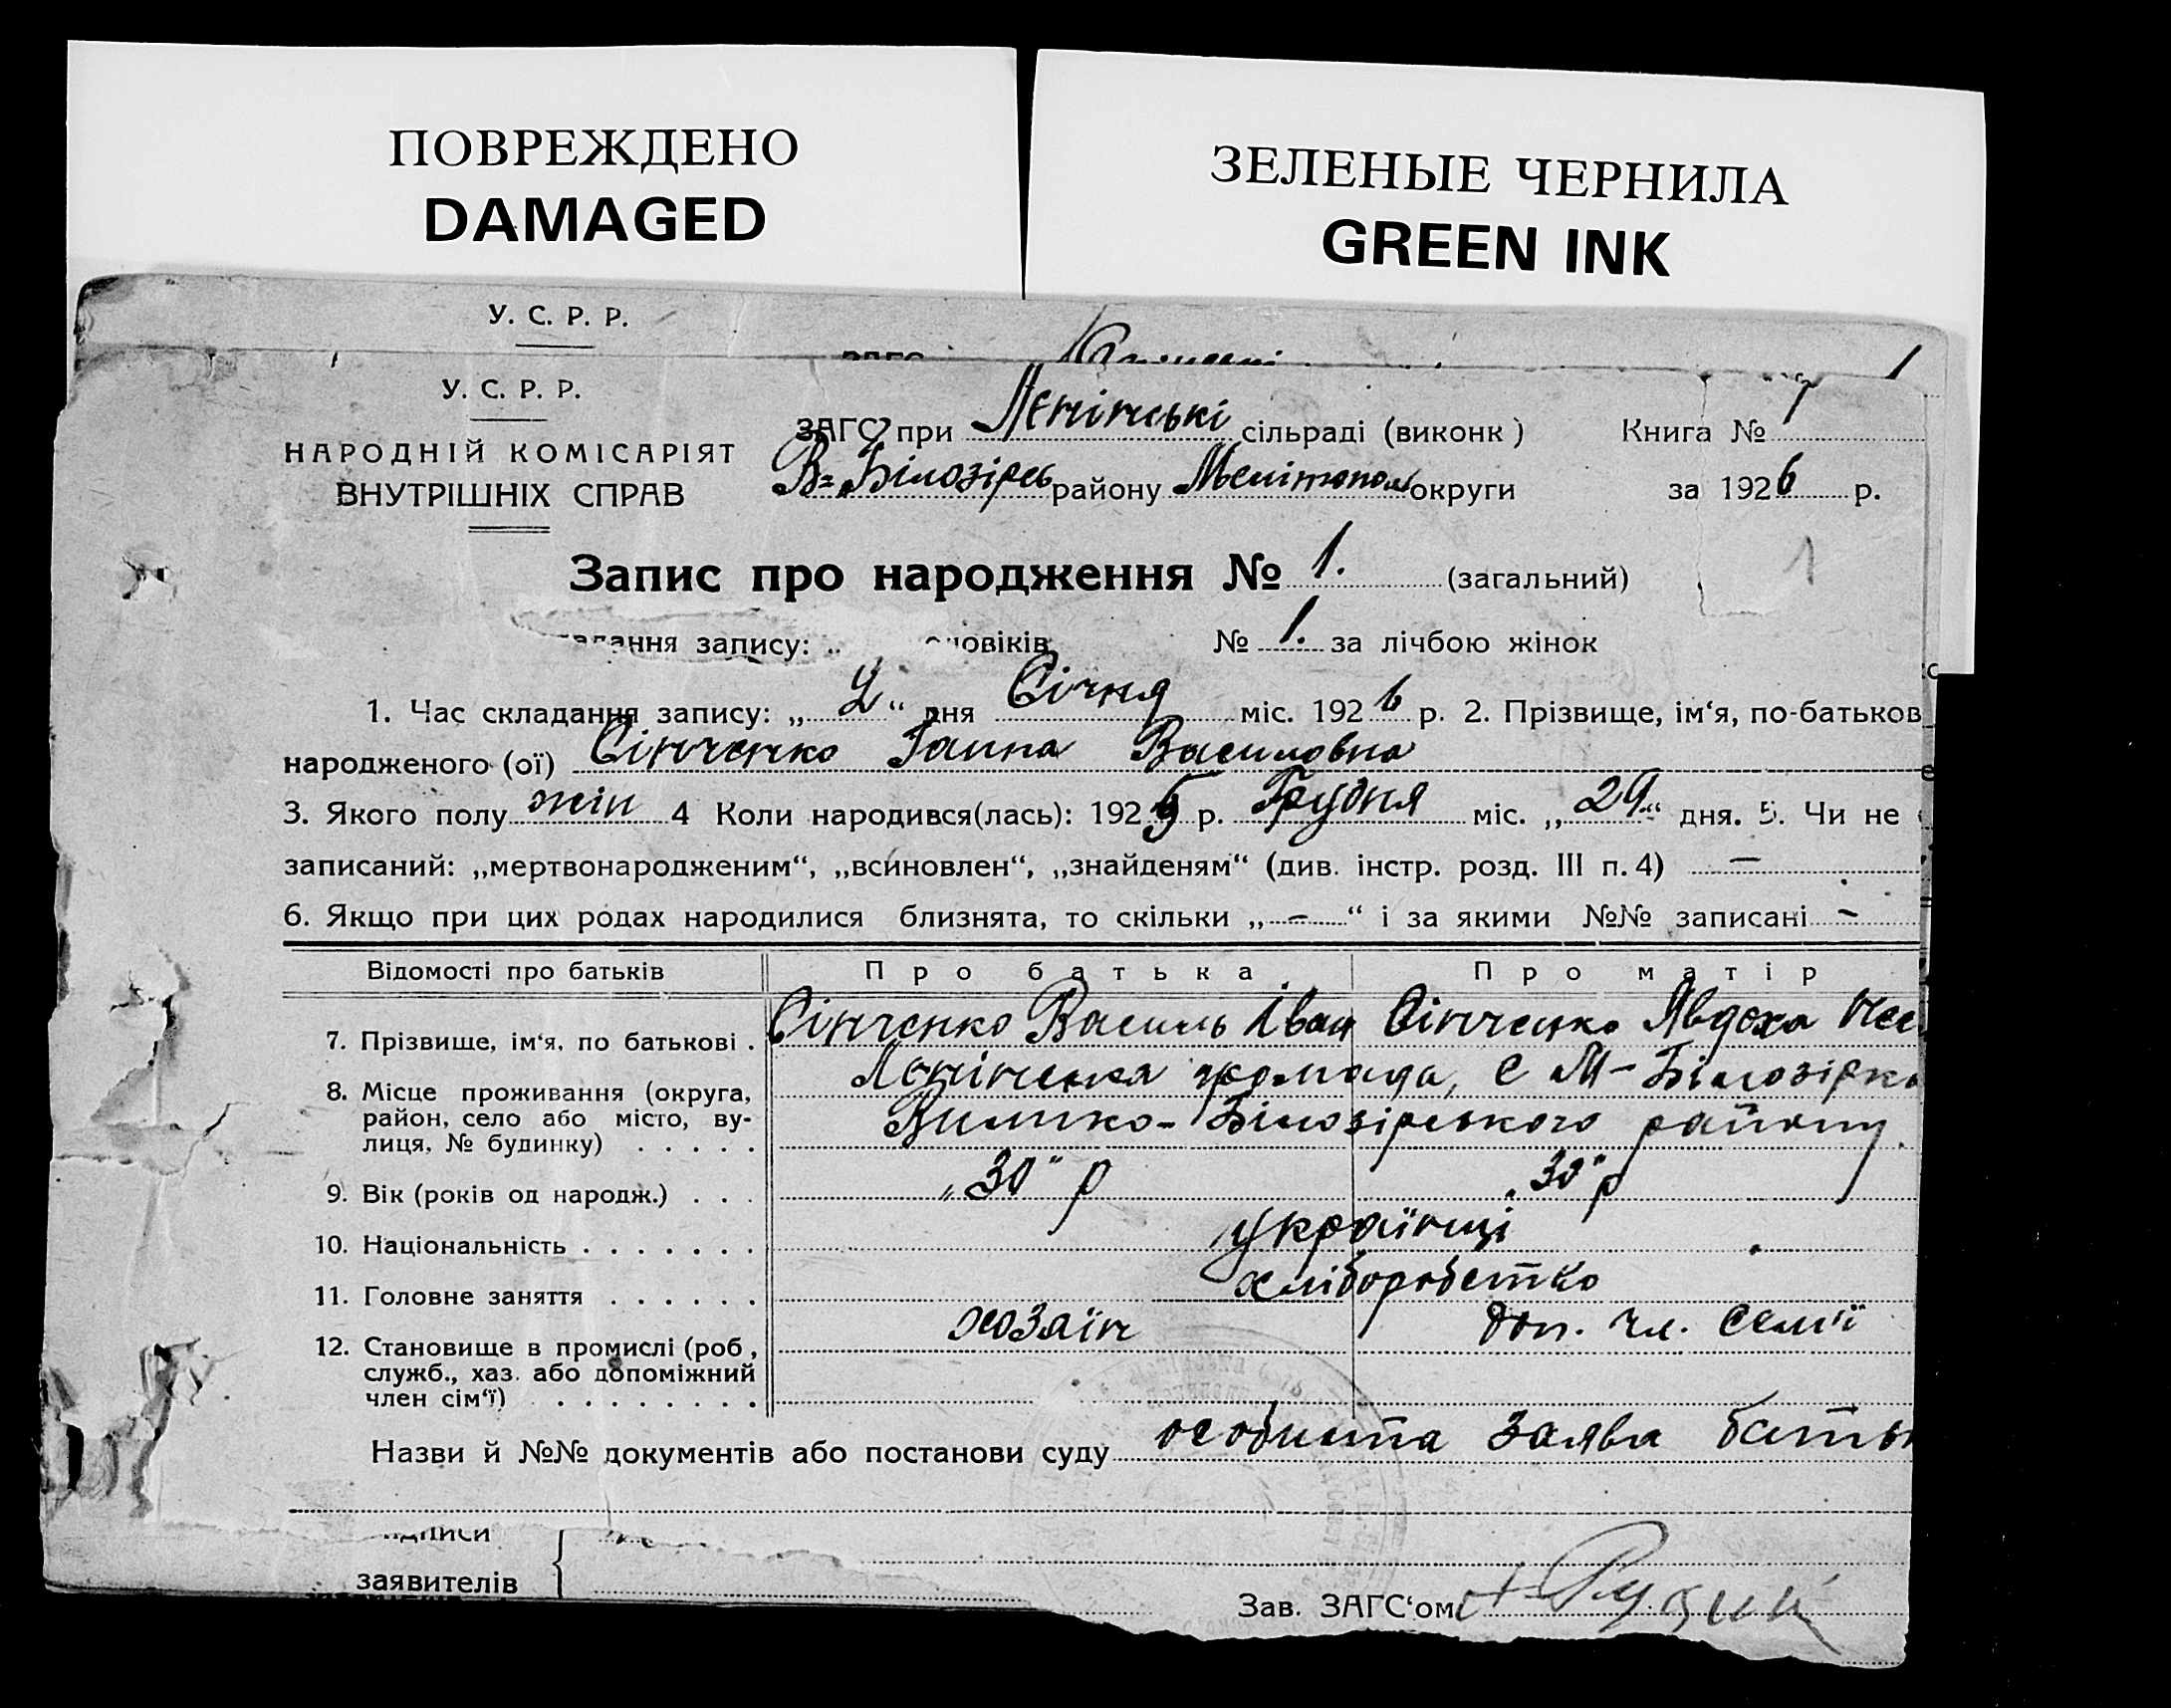 ПОВРЕЖДЕНО
DAMAGED
ЗЕЛЕНЫЕ ЧЕРНИЛА
GREEN INK
У. С. Р. Р.
У. С. Р. Р.
НАРОДНІЙ КОМІСАРІЯТ
ВНУТРІШНІХ СПРАВ
ЗАГС при Ленінські сільраді (виконк) Книга №
В=Білозірсь району Мелітопол округи за 1926 р.
Запис про народження № 1. (загальний)
1
запису: № 1. за лічбою жінок
1. Час складання запису: „2“ дня Січня міс. 1926 р. 2. Прізвище, ім‘я, по-батьков
народженого (ої) Сінченко Ганна Василовна
3. Якого полу жін 4 Коли народився(лась): 1925 р. Грудня міс. „29“ дня. 5. Чи не
записаний: „мертвонародженим“, „всиновлен“, „знайденям“ (див. інстр. розд. III п. 4) —
6. Якщо при цих родах народилися близнята, то скільки „–“ і за якими №№ записані –
Відомості про батьків Про батька Про матір
7. Прізвище, ім‘я, по батькові . Сінченко Василь Іван Сінченко Явдоха
8. Місце проживання (округа, район, село або місто, вулиця, № будинку) . . . . . Ленінська громада, с М-Білозірка
Велико-Білозірського району.
9. Вік (років од народж.) . . . „30“ р „30“ р
10. Національність . . . . . . . українці
11. Головне заняття . . . . . . хліборобство
12. Становище в промислі (роб, служб., хаз. або допоміжний член сім‘ї) . . . . . . . . хозяїн доп. чл. семії
Назви й №№ документів або постанови суду особиста заява бать
заявителів
Зав. ЗАГС‘ом